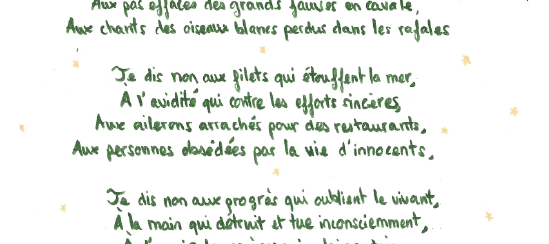 Aux pas effacés des grands fauves en cavale,
Aux chants des oiseaux blancs perdus dans les rafales
Je dis non aux filets qui étouffent la mer,
A l'avidité qui contre les efforts sincères,
Aux ailerons arrachés pour des restaurants,
Aux personnes obsédées par la vie d'innocents.
Je dis non aux progrès qui oublient le vivant,
À la main qui détruit et tue inconsciemment,